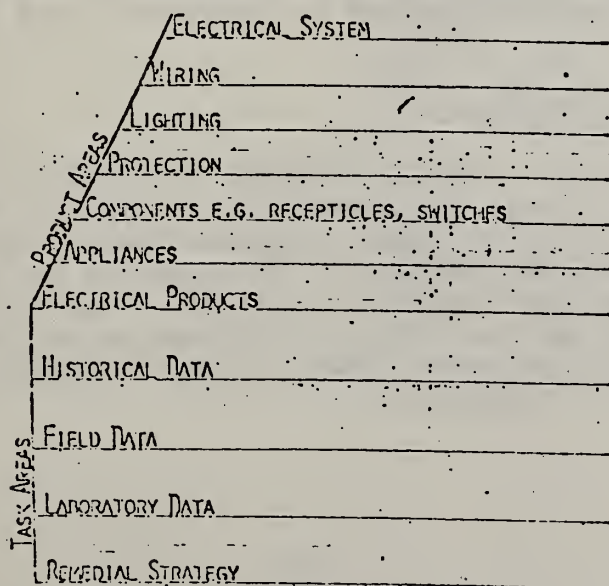 ELECTRICAL SYSTEM
WIRING
LIGHTING
PROTECTION
COMPONENTS E.G. RECEPTICLES, SWITCHES
APPLIANCES
ELECTRICAL PRODUCTS
PRODUCT AREAS
HISTORICAL DATA
FIELD DATA
LABORATORY DATA
REMEDIAL STRATEGY
TASK AREAS